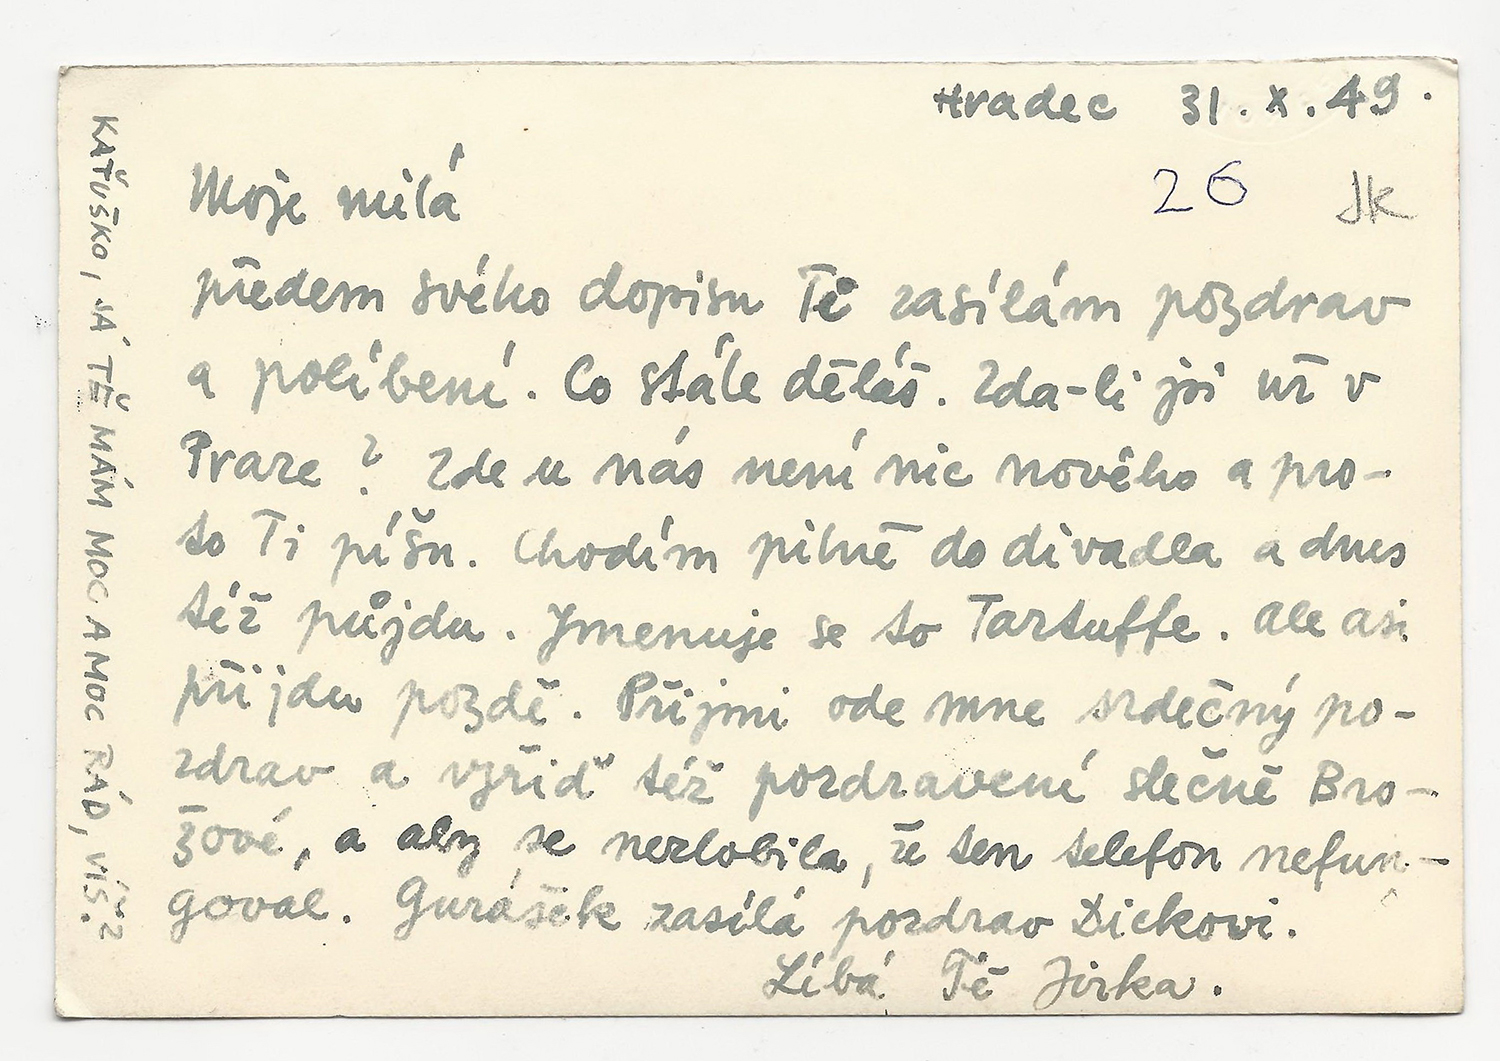 Hradec 31.X.49.
26 JK
Moje milá
předem svého dopisu Tě zasílám pozdrav
a políbení. Co stále děláš. Zda-li jsi už v
Praze? Zde u nás není nic nového a pro-
to Ti píšu. Chodím pilně do divadla a dnes
též půjdu. Jmenuje se to Tartuffe. Ale asi
přijdu pozdě. Přijmi ode mne srdečný po-
zdrav a vyřiď též pozdravení slečně Bro-
žové, a aby se nezlobila, že ten telefon nefun-
goval. Gurášek zasílá pozdrav Dickovi.
Líbá Tě Jirka.
KAŤUŠKO, JÁ TĚ MÁM MOC A MOC RÁD, VÍŠ?